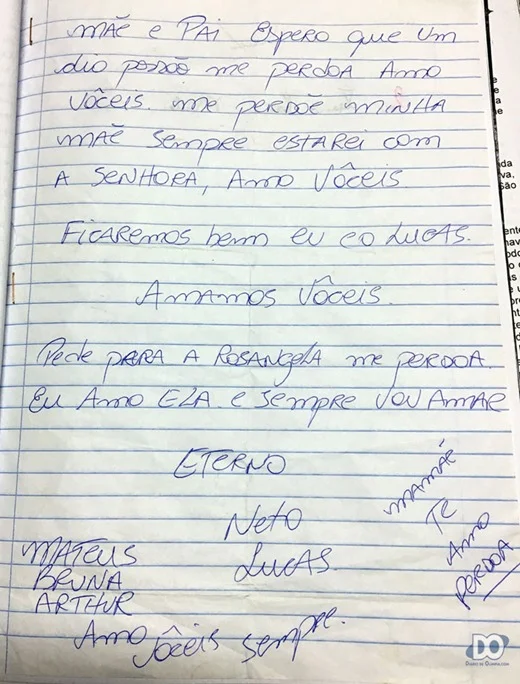 MÃE e PAI Espero que um
dia possão me perdoa Amo
vôceis me perdõe minha
mãe sempre estarei com
A SENHORA, Amo Vôceis
Ficaremos bem eu e o LUCAS.
Amamos Vôceis.
Pede para A Rosangela me perdoa.
Eu Amo ELA e sempre vou AMAR
ETERNO
Neto
Lucas.
MATEUS
BRUNA
ARTHUR
Amo Vôceis sempre.
MAMÃE
Te
Amo
PERDOA
DO
DIÁRIO DE OLIMPIA.COM